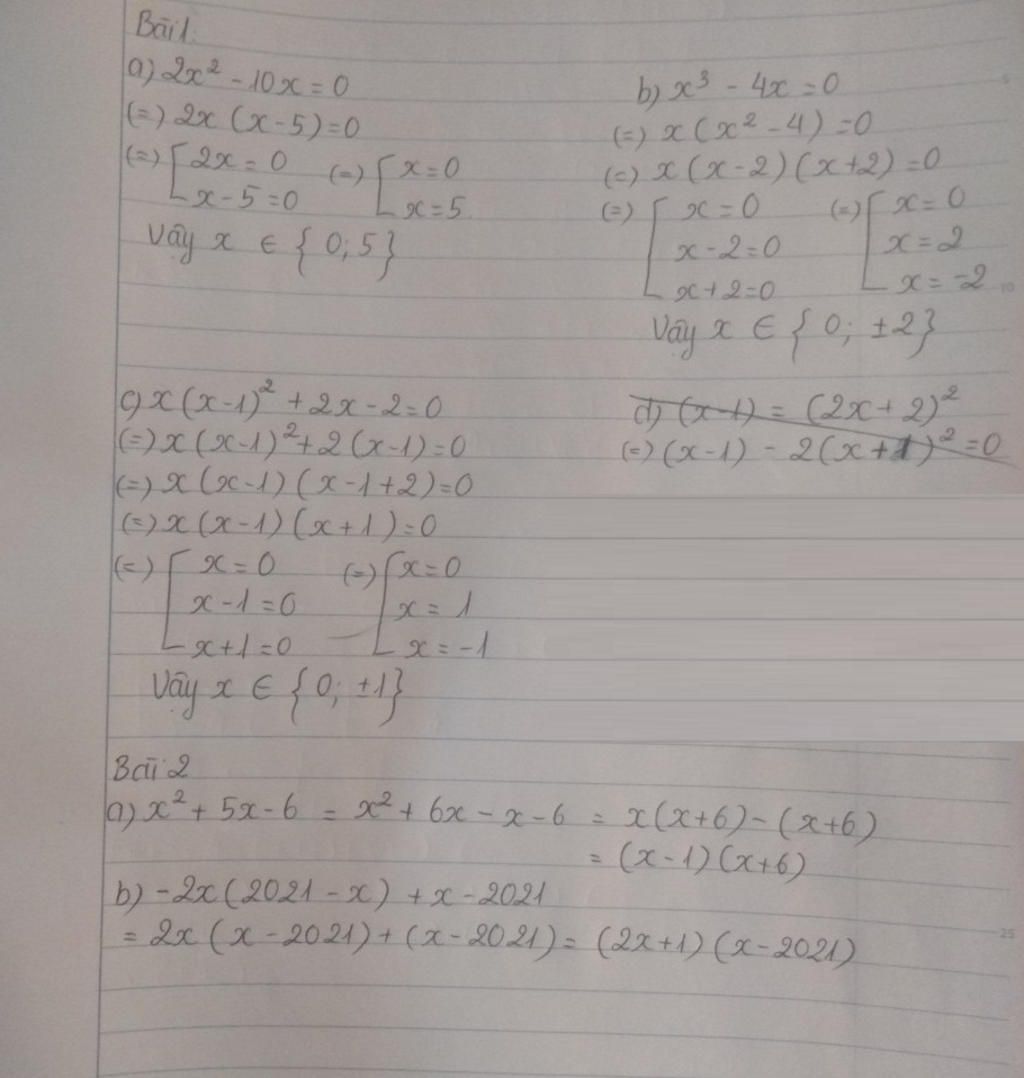 Bài 1:
a) 2x² - 10x = 0
(=) 2x (x - 5) = 0
(=) [ 2x = 0 (=) [ x = 0
x - 5 = 0 x = 5
Vậy x ∈ { 0; 5 }
b) x³ - 4x = 0
(=) x (x² - 4) = 0
(=) x (x - 2) (x + 2) = 0
(=) [ x = 0 (=) [ x = 0
x - 2 = 0 x = 2
x + 2 = 0 x = -2
Vậy x ∈ { 0; ±2 }
c) x (x - 1)² + 2x - 2 = 0
(=) x (x - 1)² + 2 (x - 1) = 0
(=) x (x - 1) (x - 1 + 2) = 0
(=) x (x - 1) (x + 1) = 0
(=) [ x = 0 (=) [ x = 0
x - 1 = 0 x = 1
x + 1 = 0 x = -1
Vậy x ∈ { 0; ±1 }
d) (x - 1) = (2x + 2)²
(=) (x - 1) - 2 (x + 1)² = 0
Bài 2
a) x² + 5x - 6 = x² + 6x - x - 6 = x (x + 6) - (x + 6)
= (x - 1) (x + 6)
b) -2x (2021 - x) + x - 2021
= 2x (x - 2021) + (x - 2021) = (2x + 1) (x - 2021)